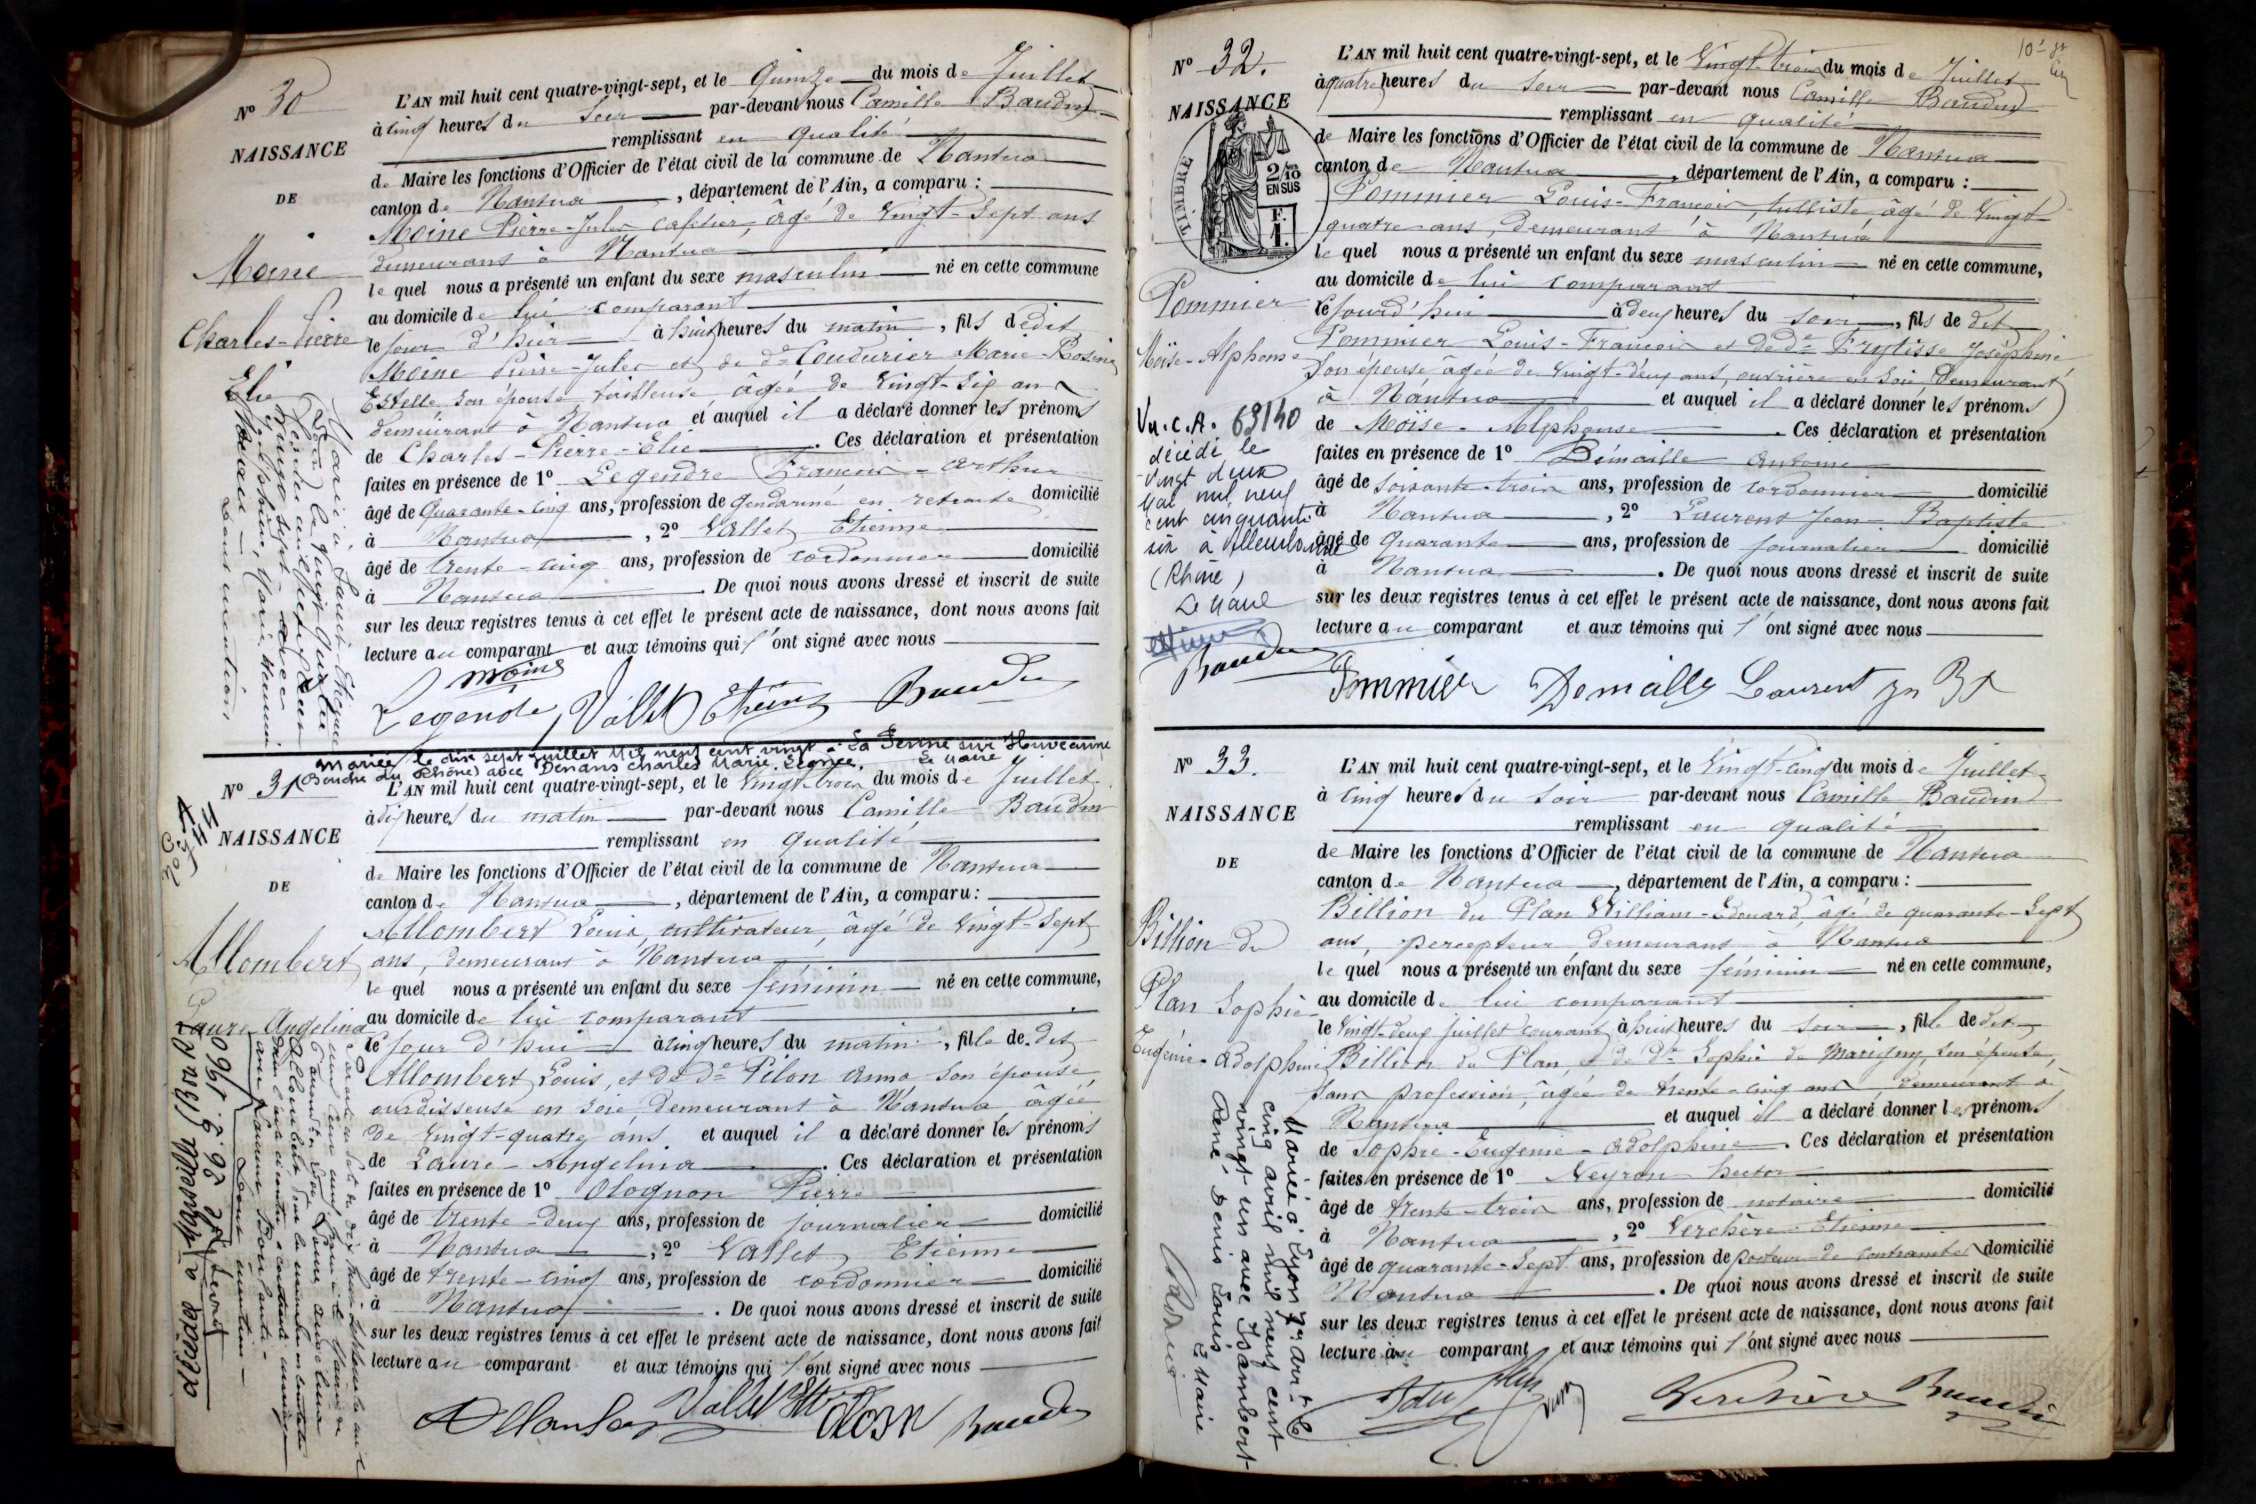 N° 30
NAISSANCE
DE
Moine
Charles-Pierre
Elie
L'AN mil huit cent quatre-vingt-sept, et le Quinze du mois de Juillet
à cinq heures du Soir par-devant nous Camille Baudin
remplissant en qualité
de Maire les fonctions d'Officier de l'état civil de la commune de Nantua
canton de Nantua, département de l'Ain, a comparu :
Moine Pierre-Jules cafetier, âgé de Vingt-Sept ans
demeurant à Nantua
lequel nous a présenté un enfant du sexe masculin né en cette commune
au domicile de lui comparant
le jour d'hier à huit heures du matin, fils dedit
Moine Pierre-Jules et de de Coudurier Marie-Rosine
Estelle son épouse tailleuse âgée de Vingt-Six ans
demeurant à Nantua et auquel il a déclaré donner les prénoms
de Charles-Pierre-Elie. Ces déclaration et présentation
faites en présence de 1° Legendre François-Arthur
âgé de Quarante-cinq ans, profession de gendarme en retraite domicilié
à Nantua, 2° Vallet Etienne
âgé de trente-cinq ans, profession de cordonnier domicilié
à Nantua. De quoi nous avons dressé et inscrit de suite
sur les deux registres tenus à cet effet le présent acte de naissance, dont nous avons fait
lecture au comparant et aux témoins qui l'ont signé avec nous
Moine
Legendre Vallet Etienne Baudin
Mariée le dix sept juillet mil neuf cent vingt à La Penne sur Huveaune
(Bouche du Rhône) avec Denans Charles Marie Léonce. Le Maire
N° 31
NAISSANCE
DE
Allombert
Laure Angelina
décédée à Marseille (B du R)
le 26.9.1960
L'AN mil huit cent quatre-vingt-sept, et le Vingt-trois du mois de Juillet
à dix heures du matin par-devant nous Camille Baudin
remplissant en qualité
de Maire les fonctions d'Officier de l'état civil de la commune de Nantua
canton de Nantua, département de l'Ain, a comparu :
Allombert Louis, cultivateur, âgé de Vingt-Sept
ans, demeurant à Nantua
lequel nous a présenté un enfant du sexe féminin né en cette commune,
au domicile de lui comparant
le jour d'hui à cinq heures du matin, fille de dit
Allombert Louis, et de de Pilon Anna son épouse
ourdisseuse en soie, demeurant à Nantua, âgée
de Vingt-quatre ans et auquel il a déclaré donner les prénoms
de Laure-Angelina. Ces déclaration et présentation
faites en présence de 1° Olognon Pierre
âgé de trente-deux ans, profession de journalier domicilié
à Nantua, 2° Vallet Etienne
âgé de trente-cinq ans, profession de cordonnier domicilié
à Nantua. De quoi nous avons dressé et inscrit de suite
sur les deux registres tenus à cet effet le présent acte de naissance, dont nous avons fait
lecture au comparant et aux témoins qui l'ont signé avec nous
Baudin
N° 32.
NAISSANCE
TIMBRE
2/10
EN SUS
Pommier
Moïse-Alphonse
Vu. C.A. 63140
décédé le
vingt deux
Mai mil neuf
cent cinquante
six à Villeurbanne
(Rhône)
Le Maire
L'AN mil huit cent quatre-vingt-sept, et le Vingt-trois du mois de Juillet
à quatre heures du Soir par-devant nous Camille Baudin
remplissant en qualité
de Maire les fonctions d'Officier de l'état civil de la commune de Nantua
canton de Nantua, département de l'Ain, a comparu :
Pommier Louis-François, tulliste, âgé de Vingt
quatre ans, demeurant à Nantua
lequel nous a présenté un enfant du sexe masculin né en cette commune,
au domicile de lui comparant
le jourd'hui à deux heures du soir, fils de dit
Pommier Louis-François et de de Joséphine
Son épouse âgée de Vingt-deux ans, ouvrière en soie demeurant
à Nantua et auquel il a déclaré donner les prénoms
de Moïse-Alphonse. Ces déclaration et présentation
faites en présence de 1° Démaille Antoine
âgé de soixante-trois ans, profession de cordonnier domicilié
à Nantua, 2° Laurent Jean-Baptiste
âgé de Quarante ans, profession de journalier domicilié
à Nantua. De quoi nous avons dressé et inscrit de suite
sur les deux registres tenus à cet effet le présent acte de naissance, dont nous avons fait
lecture au comparant et aux témoins qui l'ont signé avec nous
Baudin
Pommier Demaille Laurent
N° 33.
NAISSANCE
DE
Billion du
Plan Sophie-
Eugénie-Adolphine
Mariée à Lyon 2e arrt le
cinq avril mil neuf cent
vingt-un avec Isambert-
René Denis Louis
Le Maire
L'AN mil huit cent quatre-vingt-sept, et le Vingt-cinq du mois de Juillet
à cinq heures du soir par-devant nous Camille Baudin
remplissant en qualité
de Maire les fonctions d'Officier de l'état civil de la commune de Nantua
canton de Nantua, département de l'Ain, a comparu :
Billion du Plan William-Edouard, âgé de quarante-Sept
ans, percepteur demeurant à Nantua
lequel nous a présenté un enfant du sexe féminin né en cette commune,
au domicile de lui comparant
le Vingt-deux juillet courant à huit heures du soir, fille de dit
Billion du Plan, et de de Sophie de Marigny, son épouse,
sans profession, âgée de trente-cinq ans demeurant à
Nantua et auquel il a déclaré donner les prénoms
de Sophie-Eugénie-Adolphine. Ces déclaration et présentation
faites en présence de 1° Neyron hector
âgé de trente-trois ans, profession de notaire domicilié
à Nantua, 2° Verchère Etienne
âgé de quarante-Sept ans, profession de porteur de contraintes domicilié
Nantua. De quoi nous avons dressé et inscrit de suite
sur les deux registres tenus à cet effet le présent acte de naissance, dont nous avons fait
lecture au comparant et aux témoins qui l'ont signé avec nous
Verchère Baudin